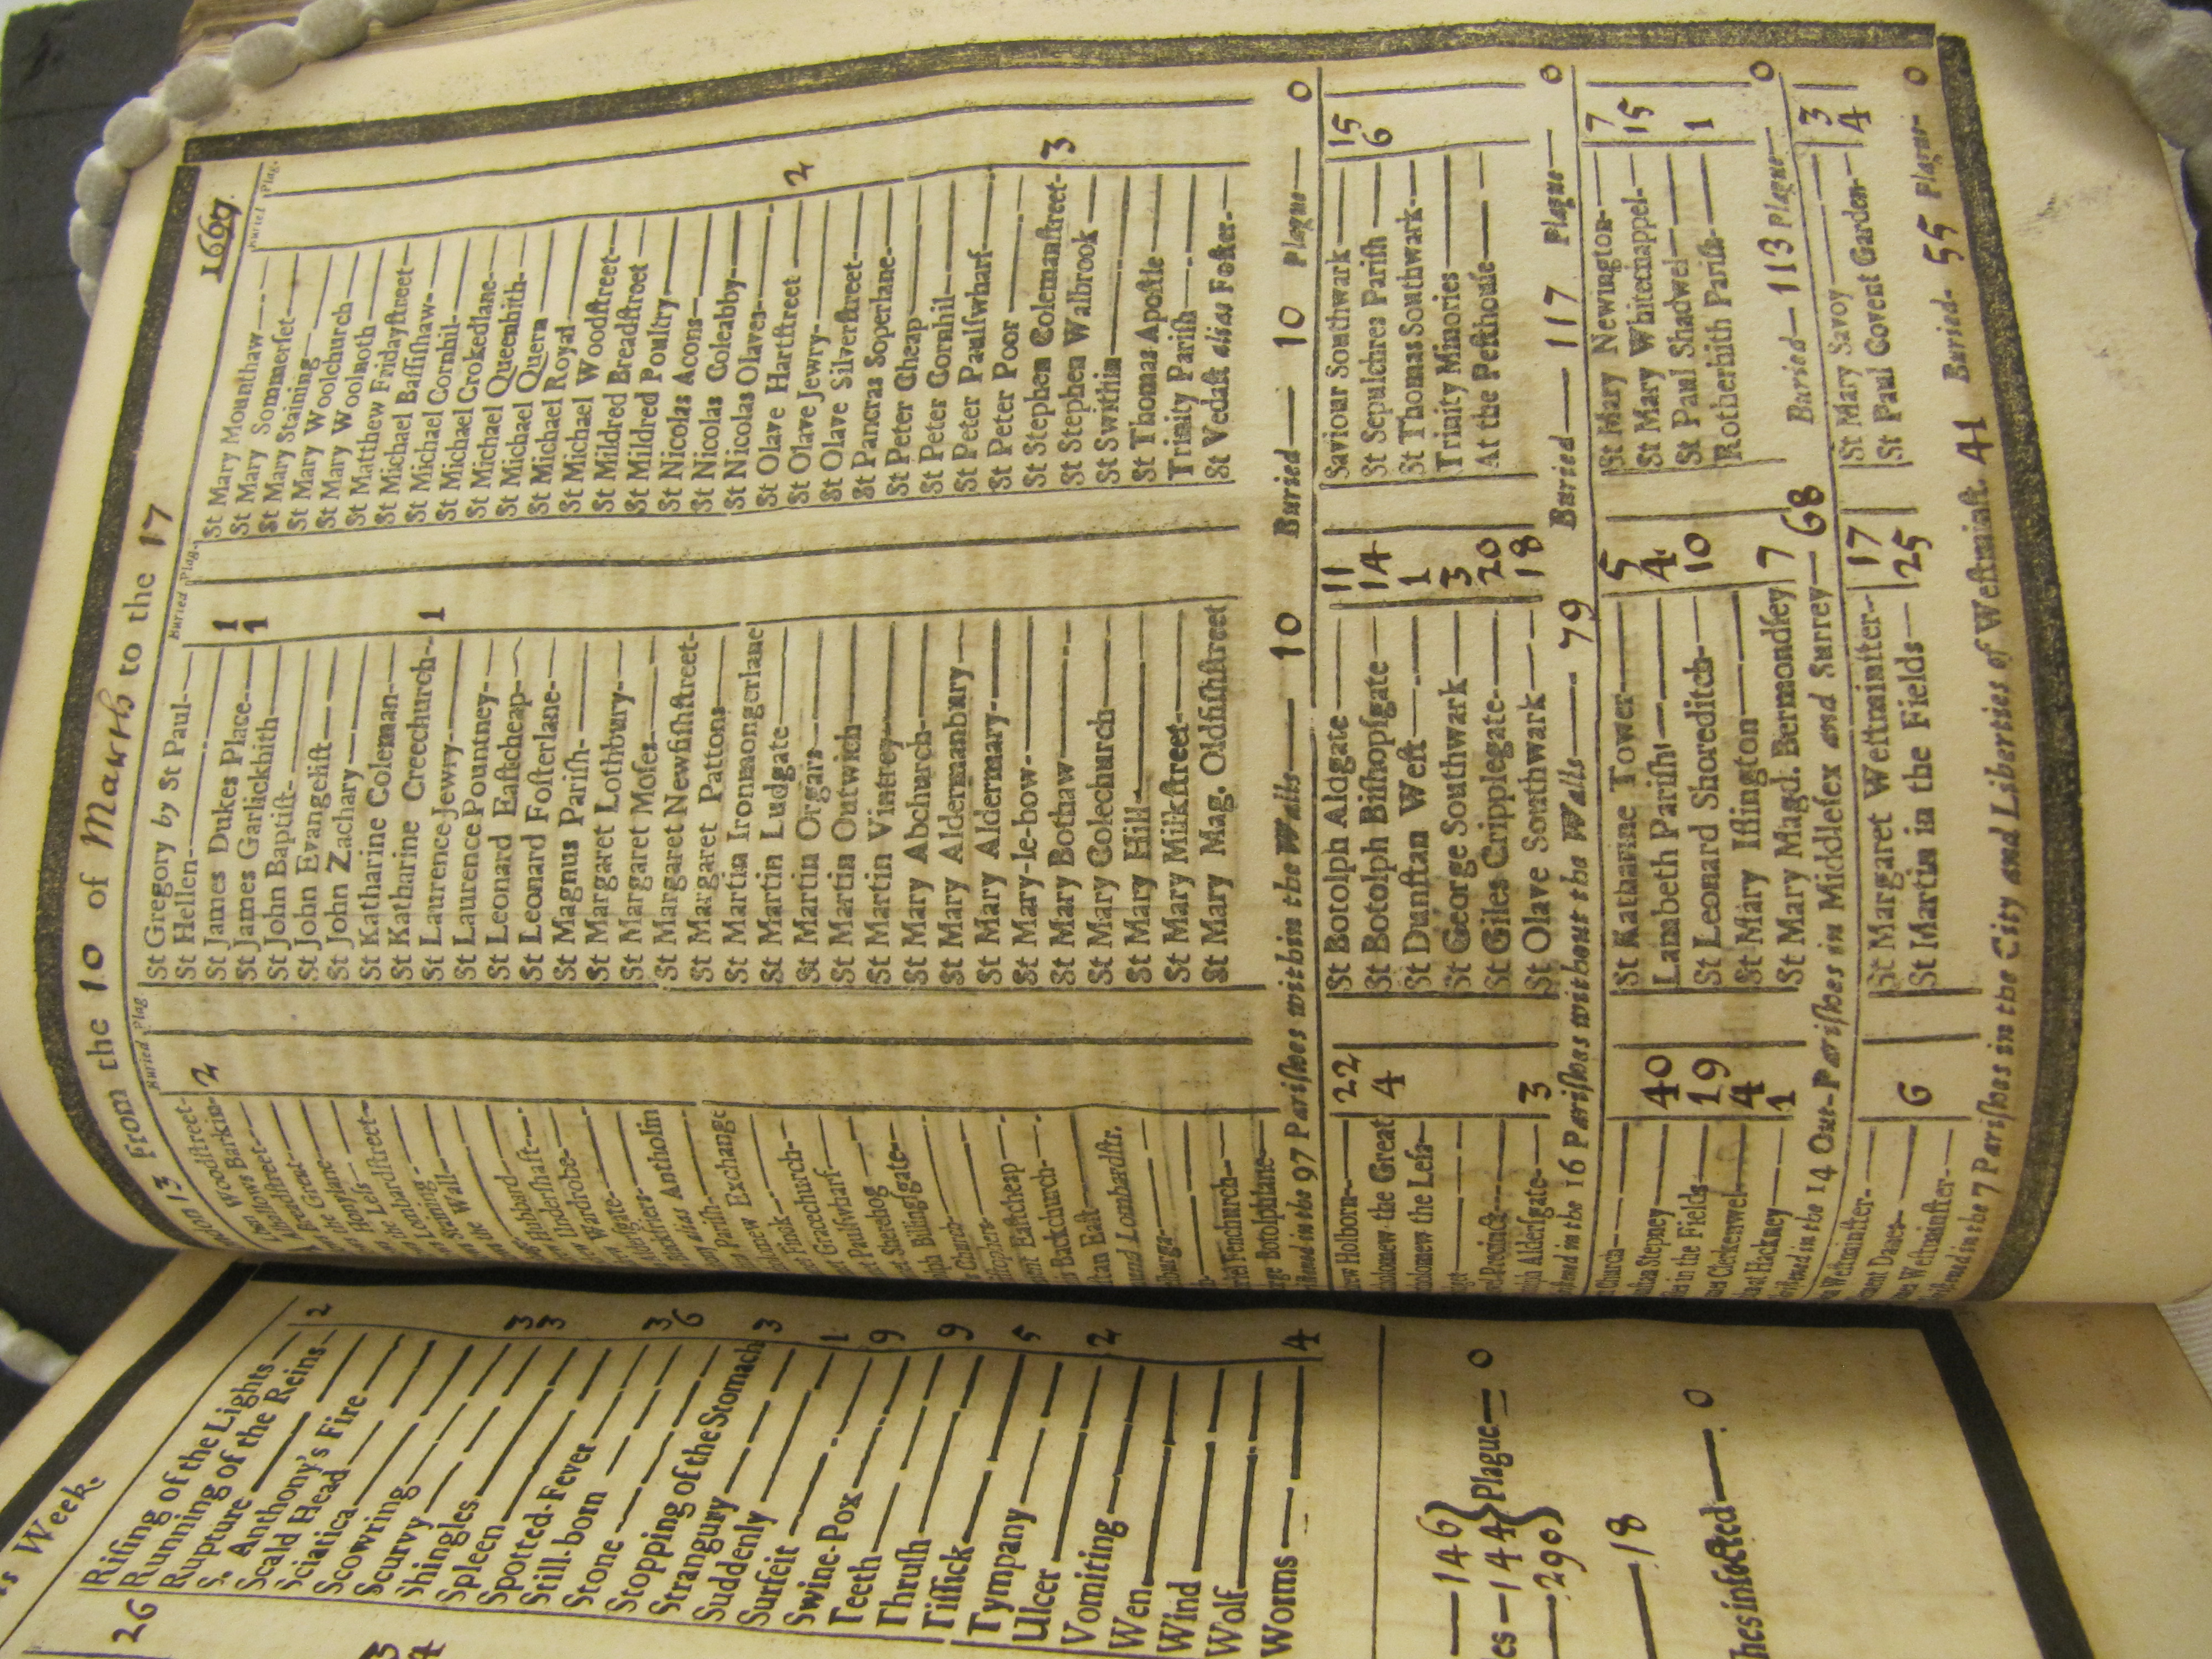 13 From the 10 of March to the 17 1667
Buried Plag
Woodstreet
Barkin 2
Breadstreet
Great
Honylane
Less
Lumbardstreet
Staining
the Wall
Hubbard
Undershaft
Wardrobe
Aldersgate
Blackfriers
alias Antholin
Parish
new Exchange
Fink
Gracechurch
Paulswharf
Sherehog
Billingsgate
Church
Eastcheap
Backchurch
stan East
Lombardstr.
Fenchurch
Botolphlane
Buried Plag.
St Gregory by St Paul
St Hellen
St James Dukes Place 1
St James Garlickhith 1
St John Baptist
St John Evangelist
St John Zachary
St Katharine Coleman
St Katharine Creechurch 1
St Laurence Jewry
St Laurence Pountney
St Leonard Eastcheap
St Leonard Fosterlane
St Magnus Parish
St Margaret Lothbury
St Margaret Moses
St Margaret Newfishstreet
St Margaret Pattons
St Martin Ironmongerlane
St Martin Ludgate
St Martin Orgars
St Martin Outwich
St Martin Vintrey
St Mary Abchurch
St Mary Aldermanbury
St Mary Aldermary
St Mary-le-bow
St Mary Bothaw
St Mary Colechurch
St Mary Hill
St Mary Milkstreet
St Mary Mag. Oldfishstreet
Buried Plag.
St Mary Mounthaw
St Mary Sommerset
St Mary Staining
St Mary Woolchurch
St Mary Woolnoth
St Matthew Fridaystreet
St Michael Bassishaw
St Michael Cornhil
St Michael Crokedlane
St Michael Queenhith
St Michael Quern
St Michael Royal
St Michael Woodstreet
St Mildred Breadstreet
St Mildred Poultry
St Nicolas Acons
St Nicolas Coleabby
St Nicolas Olaves
St Olave Hartstreet 2
St Olave Jewry
St Olave Silverstreet
St Pancras Soperlane
St Peter Cheap
St Peter Cornhil
St Peter Paulswharf
St Peter Poor
St Stephen Colemanstreet 3
St Stephen Walbrook
St Swithin
St Thomas Apostle
Trinity Parish
St Vedast alias Foster
in the 97 Parishes within the Walls 10 Buried 10 Plague 0
Holborn 22
the Great 4
the Less
Precinct
Aldersgate 3
St Botolph Aldgate 11
St Botolph Bishopsgate 14
St Dunstan West 1
St George Southwark 3
St Giles Cripplegate 20
St Olave Southwark 18
Saviour Southwark 15
St Sepulchres Parish 6
St Thomas Southwark
Trinity Minories
At the Pesthouse
in the 16 Parishes without the Walls 79 Buried 117 Plague 0
Church
Stepney 40
in the Fields 19
Clerkenwel 4
Hackney 1
St Katharine Tower 5
Lambeth Parish 4
St Leonard Shoreditch 10
St Mary Islington
St Mary Magd. Bermondsey 7
St Mary Newington 7
St Mary Whitechappel 15
St Paul Shadwel 1
Rotherhith Parish
in the 14 Out-Parishes in Middlesex and Surrey 68 Buried 113 Plague 0
Westminster
Danes 6
Westminster
St Margaret Westminster 17
St Martin in the Fields 25
St Mary Savoy 3
St Paul Covent Garden 4
in the 7 Parishes in the City and Liberties of Westminst. 41 Buried 55 Plague 0
Week.
26
Rising of the Lights 2
Running of the Reins
Rupture
S. Anthony's Fire
Scald Head
Sciatica
Scowring
Scurvy 3
Shingles 3
Spleen
Spotted-Fever
Still-born 3
Stone 6
Stopping of the Stomach
Strangury 3
Suddenly
Surfeit 1
Swine-Pox 9
Teeth
Thrush 9
Tissick
Tympany 5
Ulcer
Vomiting 2
Wen
Wind
Wolf
Worms 4
146
144 Plague 0
290
18
infected 0